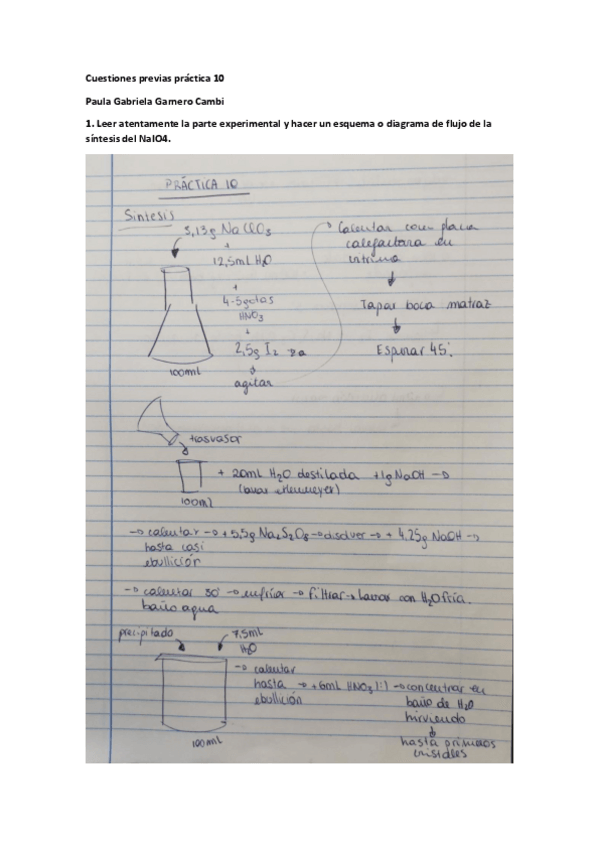 Cuestiones previas práctica 10
Paula Gabriela Garnero Cambi
1. Leer atentamente la parte experimental y hacer un esquema o diagrama de flujo de la
síntesis del NaIO4.
PRÁCTICA 10
Síntesis
3,13g NaClO3
+
12,5mL H2O
+
4-5 gotas
HNO3
2,5g I2
agitar
100ml
Calentar con placa
calefactora en
vitrina
Tapar boca matraz
Esperar 45'.
trasvasar
+ 20mL H2O destilada + 1g NaOH →
(lavar erlenmeyer)
100ml
→ calentar → + 5,5g Na2S2O8 → disolver → + 4,25g NaOH →
hasta casi
ebullición
→ calentar 30' → enfriar → filtrar → lavar con H2O fría.
baño agua
precipitado
7,5mL
H2O
→ calentar
hasta → +6mL HNO3 1:1 → concentrar en
ebullición
baño de H2O
hirviendo
hasta primeros
cristales
100ml